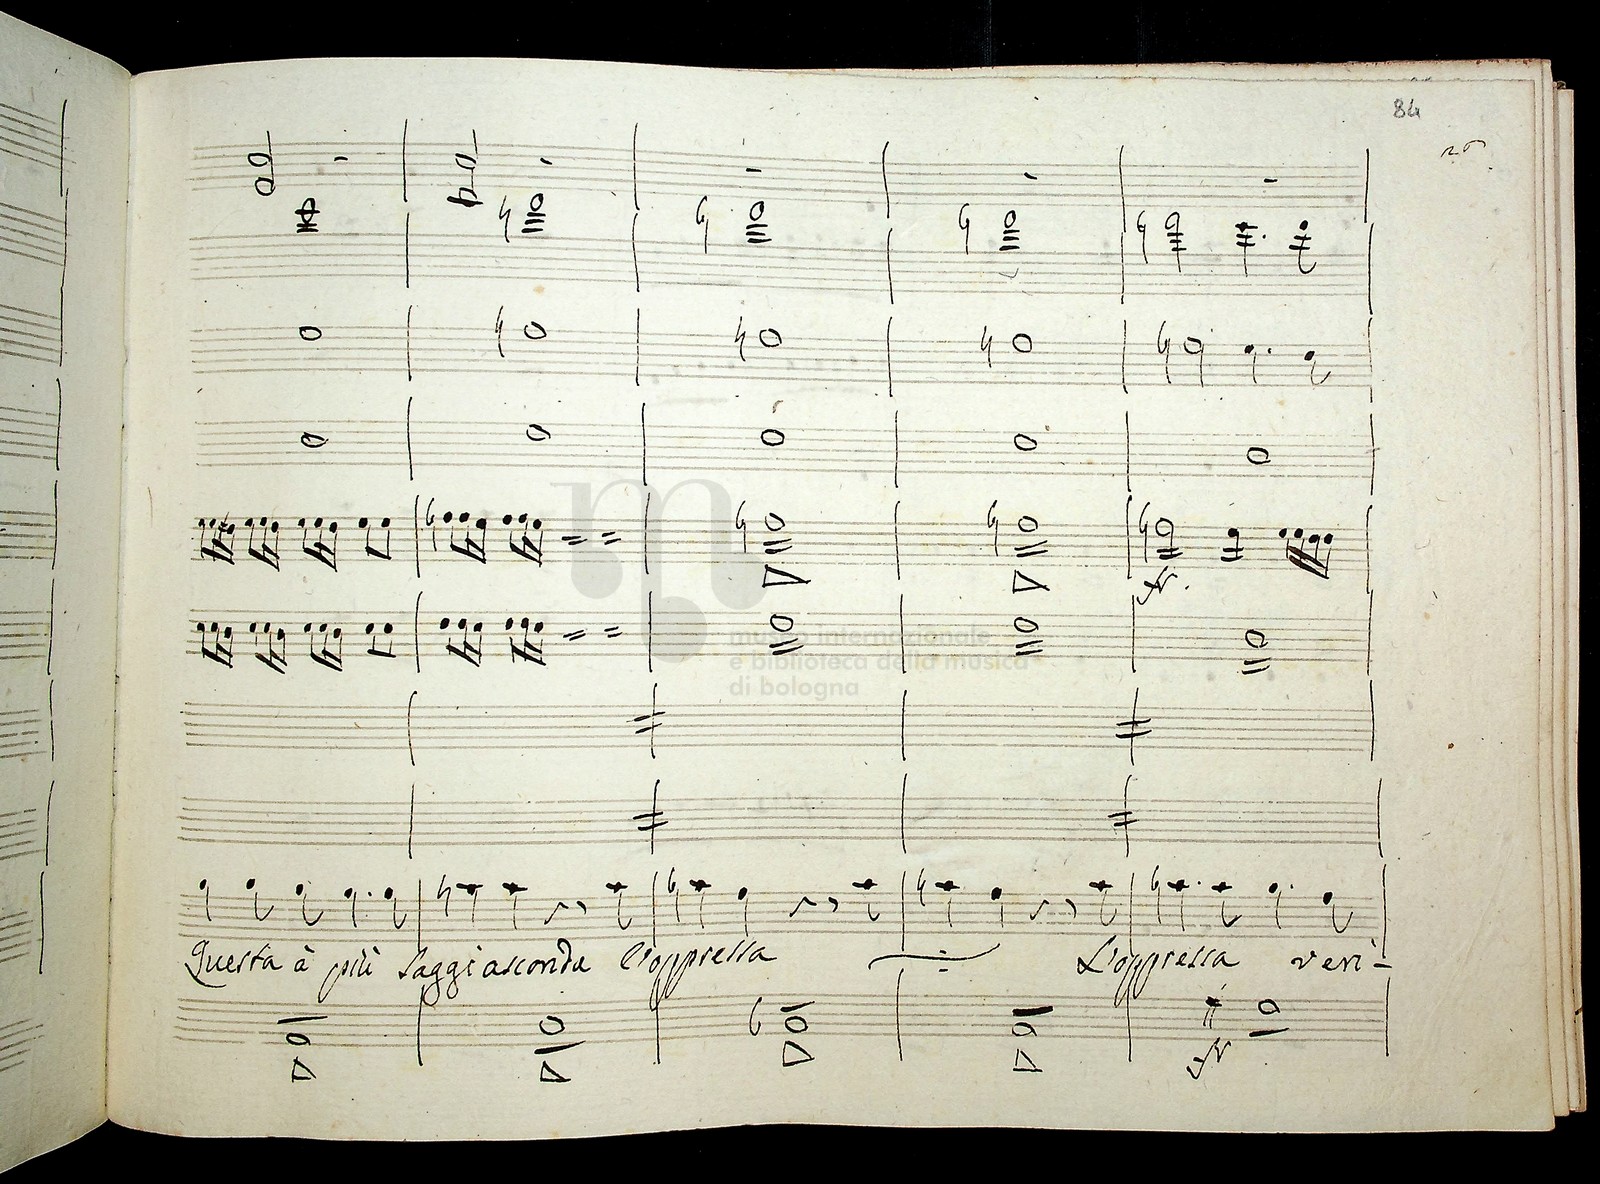 84
museo internazionale
e biblioteca della musica
di bologna
Questa à più saggi asconde l'oppressa L'oppressa veri-